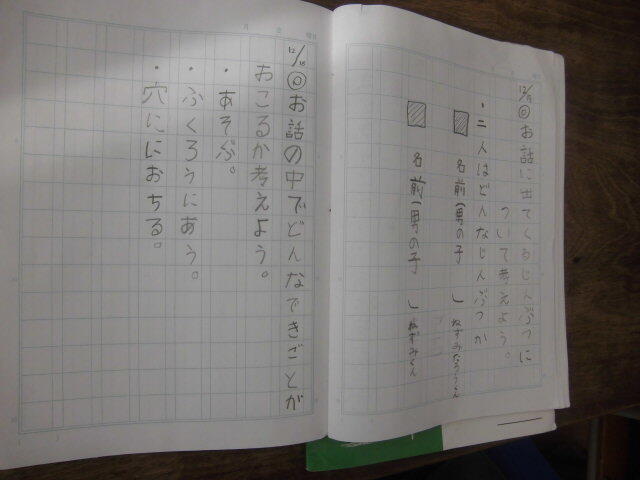 12/15 ◎お話に出てくるじんぶつに
ついて考えよう。
・二人はどんなじんぶつか
名前「男の子」
名前「男の子」ねずみくん
12/18 ◎お話の中でどんなできごとが
おこるか考えよう。
・あそぶ。
・ふくろうにあう。
・穴ににおちる。